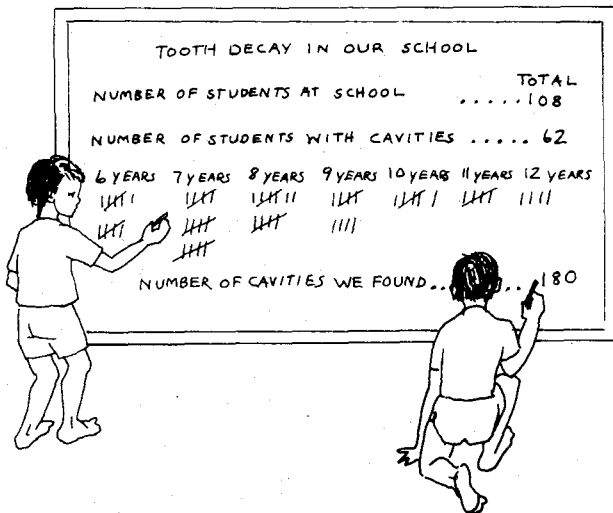 TOOTH DECAY IN OUR SCHOOL
TOTAL
NUMBER OF STUDENTS AT SCHOOL .....108
NUMBER OF STUDENTS WITH CAVITIES ..... 62
6 YEARS 7 YEARS 8 YEARS 9 YEARS 10 YEARS 11 YEARS 12 YEARS
NUMBER OF CAVITIES WE FOUND........180